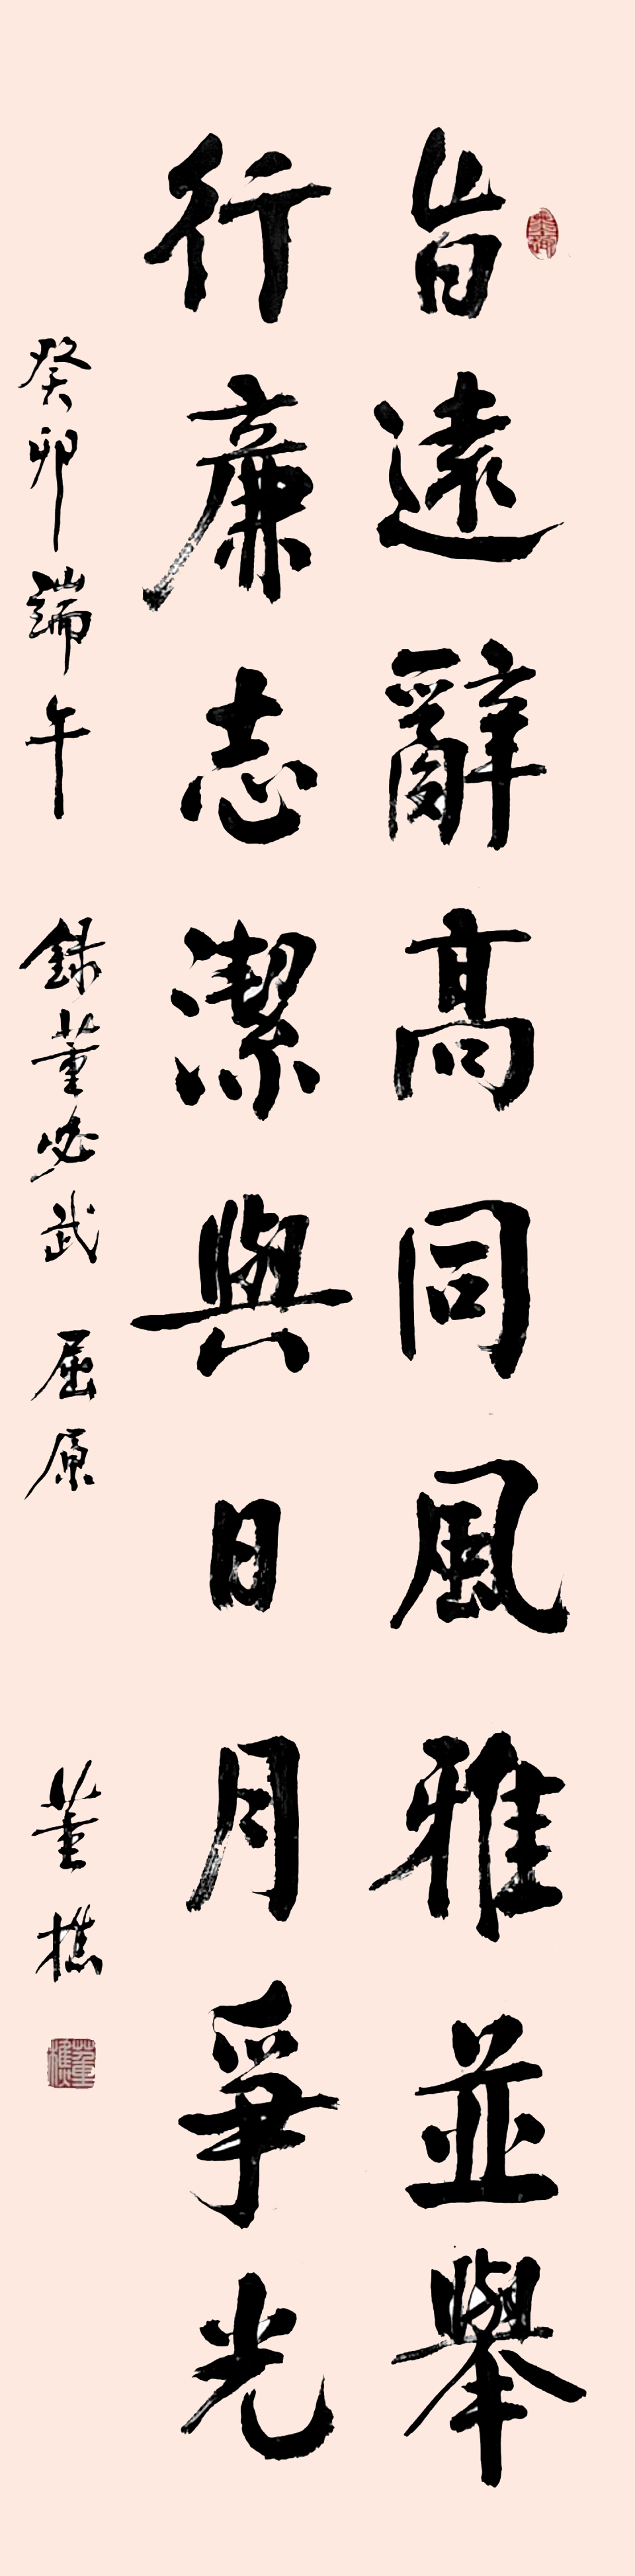 旨遠辭高同風雅並舉
行廉志潔與日月爭光
癸卯端午 錄董必武 屈原 董樵
董樵